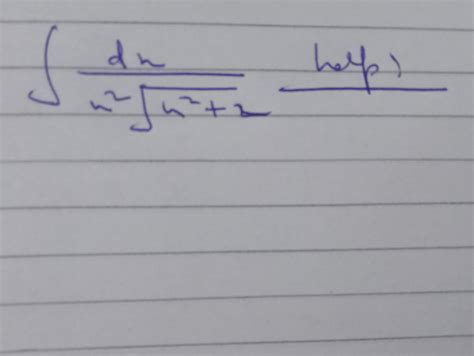 ∫ dx / x²√x²+2 help!